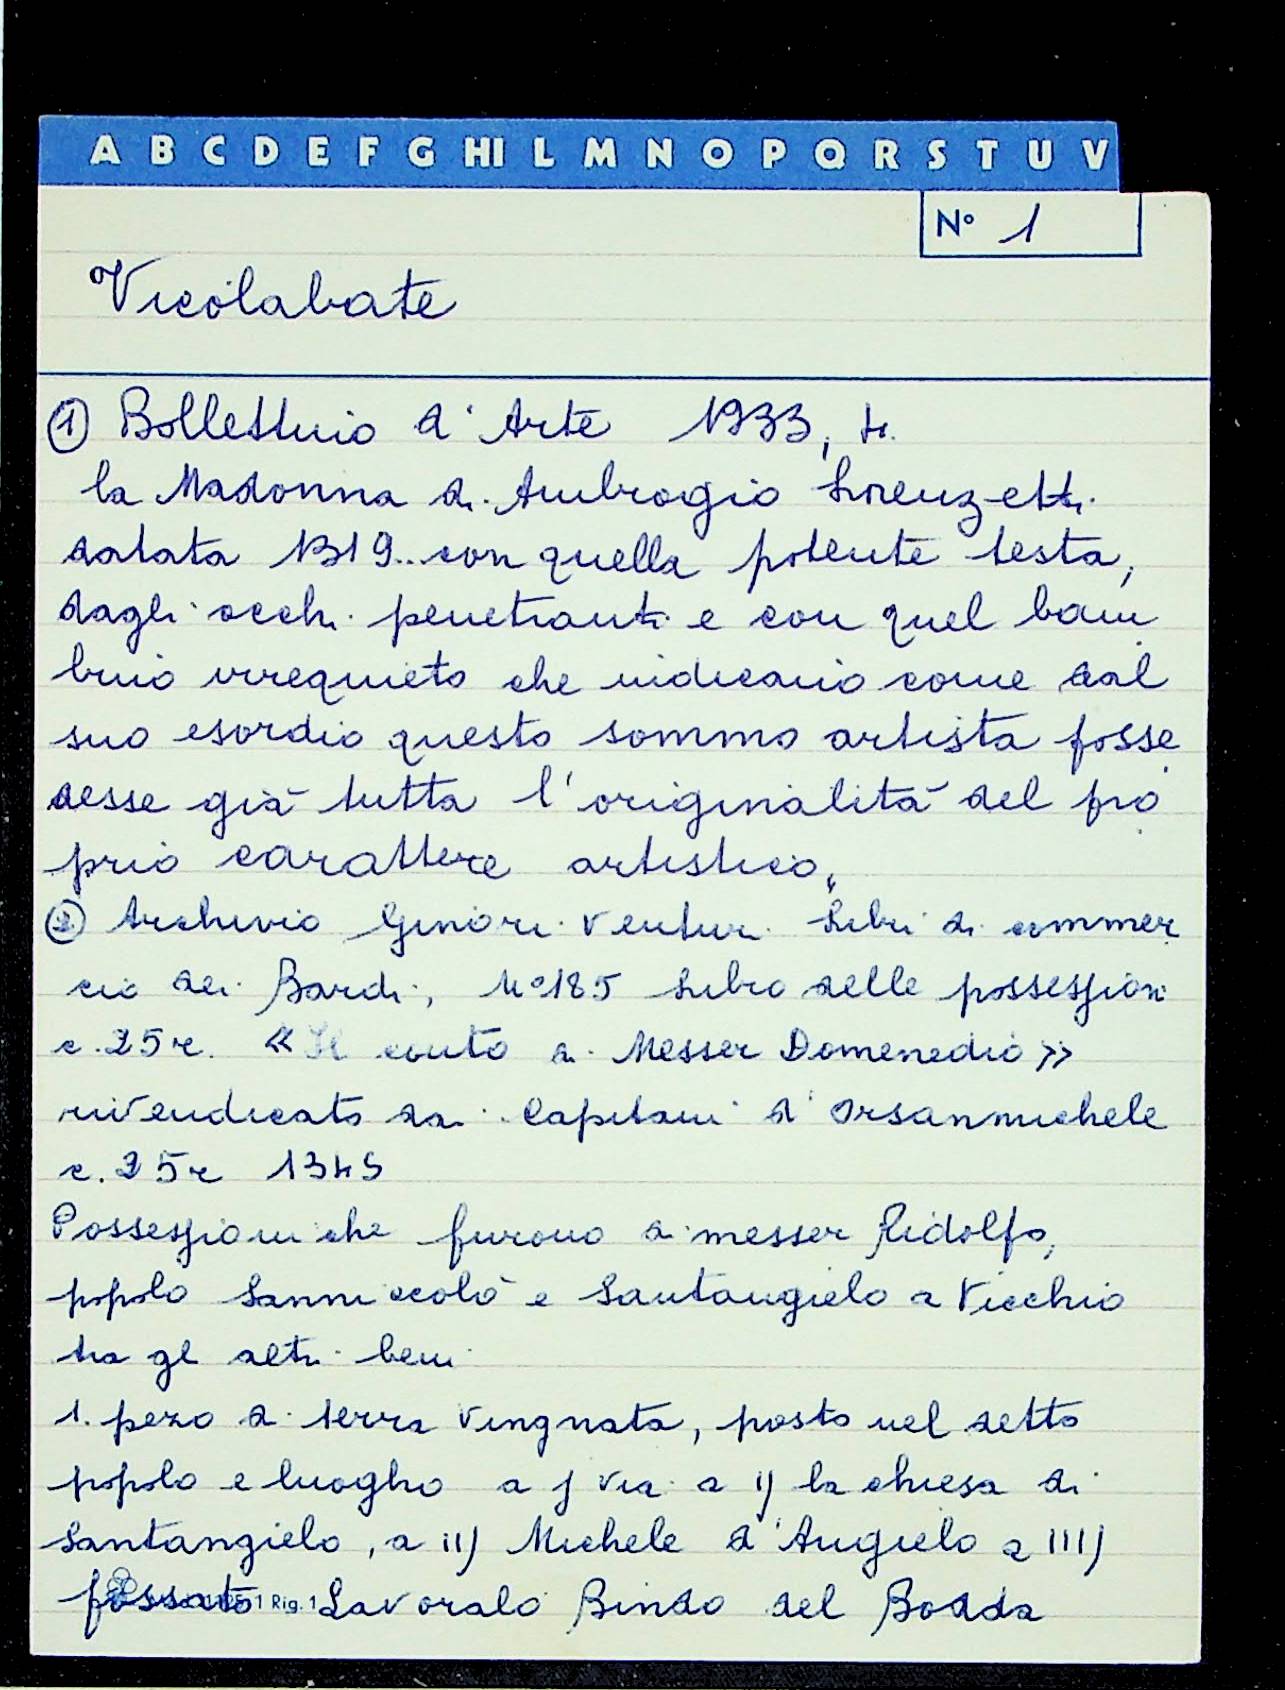 A B C D E F G HI L M N O P Q R S T U V
N° 1
Vicolabate
① Bollettino d'Arte 1933, 4.
la Madonna di Ambrogio Lorenzetti
datata 1319.. con quella potente testa,
dagli occhi penetranti e con quel bam
bino irrequieto che indicano come dal
suo esordio questo sommo artista fosse
desse già tutta l'originalità del pro
prio carattere artistico.
② Archivio Ginori Venturi Libri di commer
cio dei Bardi, N°185 Libro delle possessioni
c. 25r. «Il conto di Messer Domenedio»
rivendicato dai Capitani d'Orsanmichele
c. 25r 1345
Possessioni che furono di messer Ridolfo,
popolo Sanniccolò e Santangielo a Vicchio
tra gl altri beni
1. pezo di terra vingnata, posto nel detto
popolo e luogho a j via a ij la chiesa di
Santangielo, a iij Michele d'Angielo a iiij
fossato Lavoralo Bindo del Bodda
1 Rig. 1